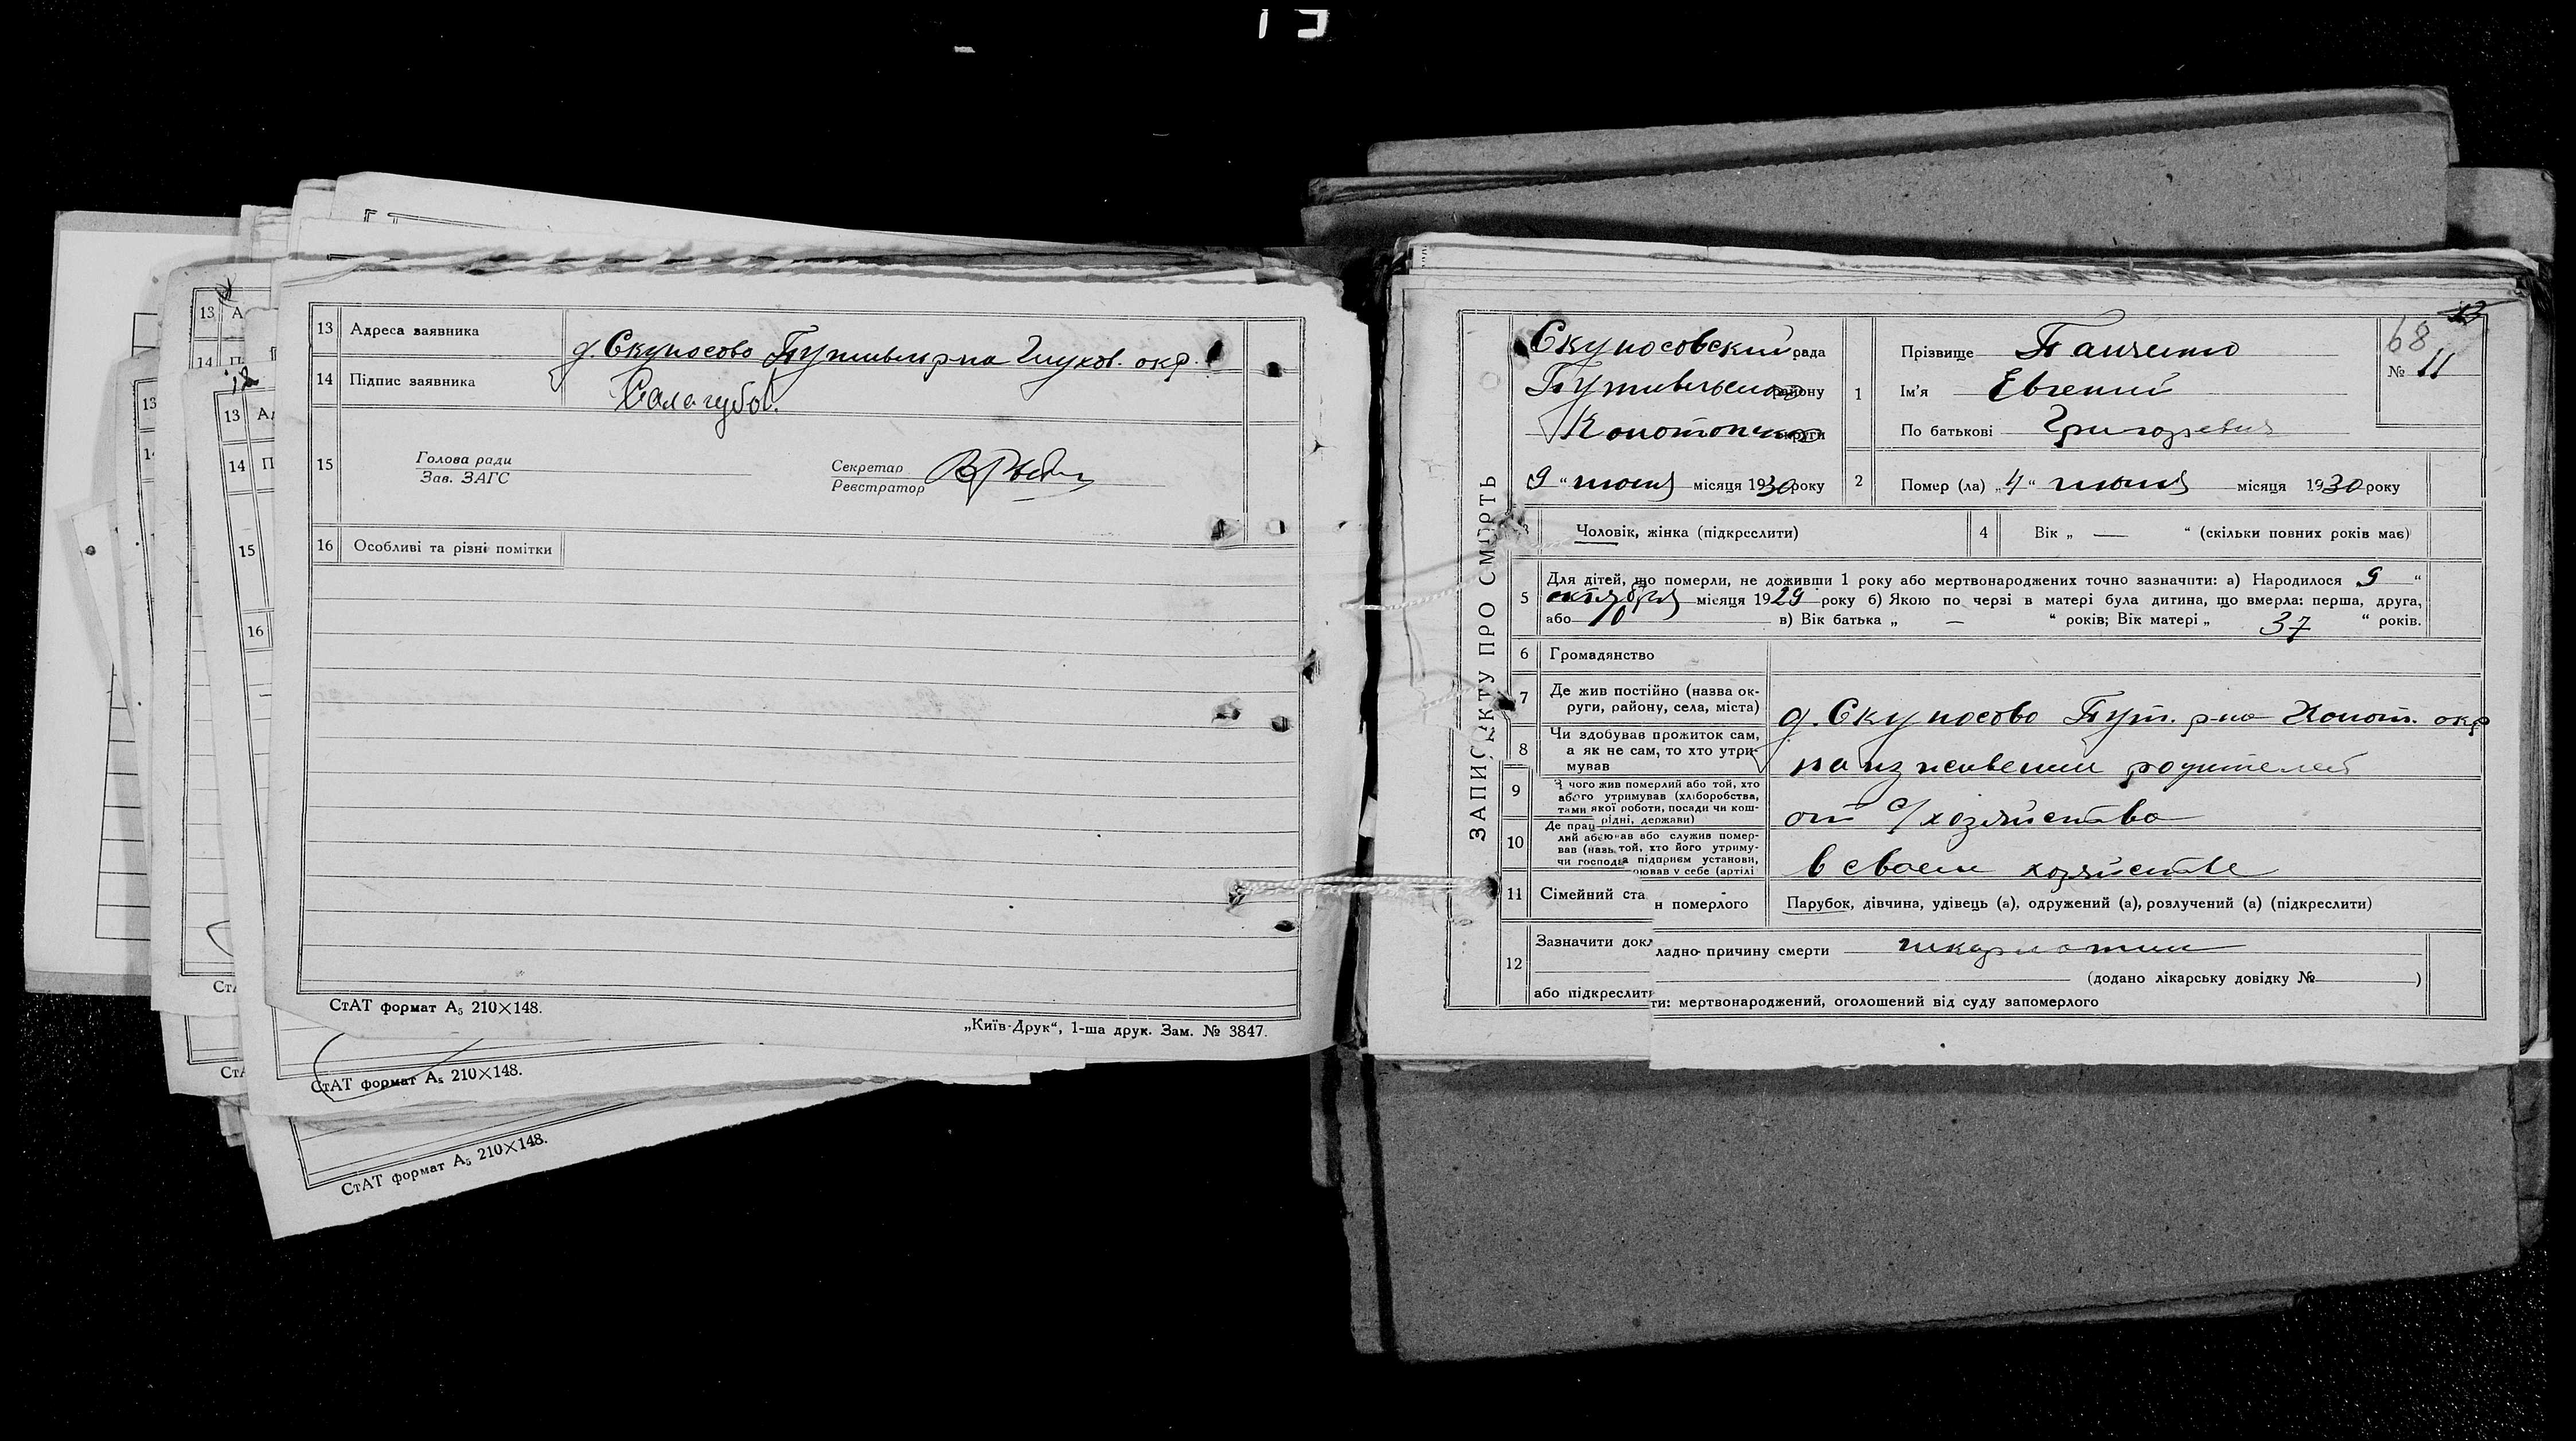 13 Адреса заявника д. Скуносово Путивльс р-на Глухов. окр.
14 Підпис заявника Салогубов.
15 Голова ради
Зав. ЗАГС
Секретар
Реєстратор
16 Особливі та різні помітки
СтАТ формат А₅ 210×148.
„Київ-Друк“, 1-ша друк. Зам. № 3847.
СтАТ формат А₅ 210×148.
СтАТ формат А₅ 210×148.
13
14
15
16
ЗАПИС АКТУ ПРО СМЕРТЬ
Скуносовский рада
Путивльского району
Конотопской округи
9 “ июня місяця 1930 року
68
№ 11
1 Прізвище Панченко
Ім'я Евгений
По батькові Григорьевич
2 Помер (ла) „4“ июня місяця 1930 року
3 Чоловік, жінка (підкреслити)
4 Вік „ — “ (скільки повних років має)
5 Для дітей, що померли, не доживши 1 року або мертвонароджених точно зазначити: а) Народилося 9 “
октября місяця 1929 року б) Якою по черзі в матері була дитина, що вмерла: перша, друга,
або 10 в) Вік батька „ — “ років; Вік матері „ 37 “ років.
6 Громадянство
7 Де жив постійно (назва ок-
руги, району, села, міста)
д. Скуносово Пут. р-на Конот. окр
8 Чи здобував прожиток сам,
а як не сам, то хто утри-
мував
на иждивении родителей
9 чого жив померлий або той, хто
його утримував (хліборобства,
якої роботи, посади чи кош-
тами рідні, держави)
от с/хозяйства
10 Де прац
ював або служив помер-
лий або той, хто його утриму-
вав (назва підприєм установи,
чи господ
ював у себе (артілі
в своем хозяйстве
11 Сімейний стан померлого
Парубок, дівчина, удівець (а), одружений (а), розлучений (а) (підкреслити)
12 Зазначити докладно причину смерти скарлатина
(додано лікарську довідку № )
або підкреслити: мертвонароджений, оголошений від суду запомерлого